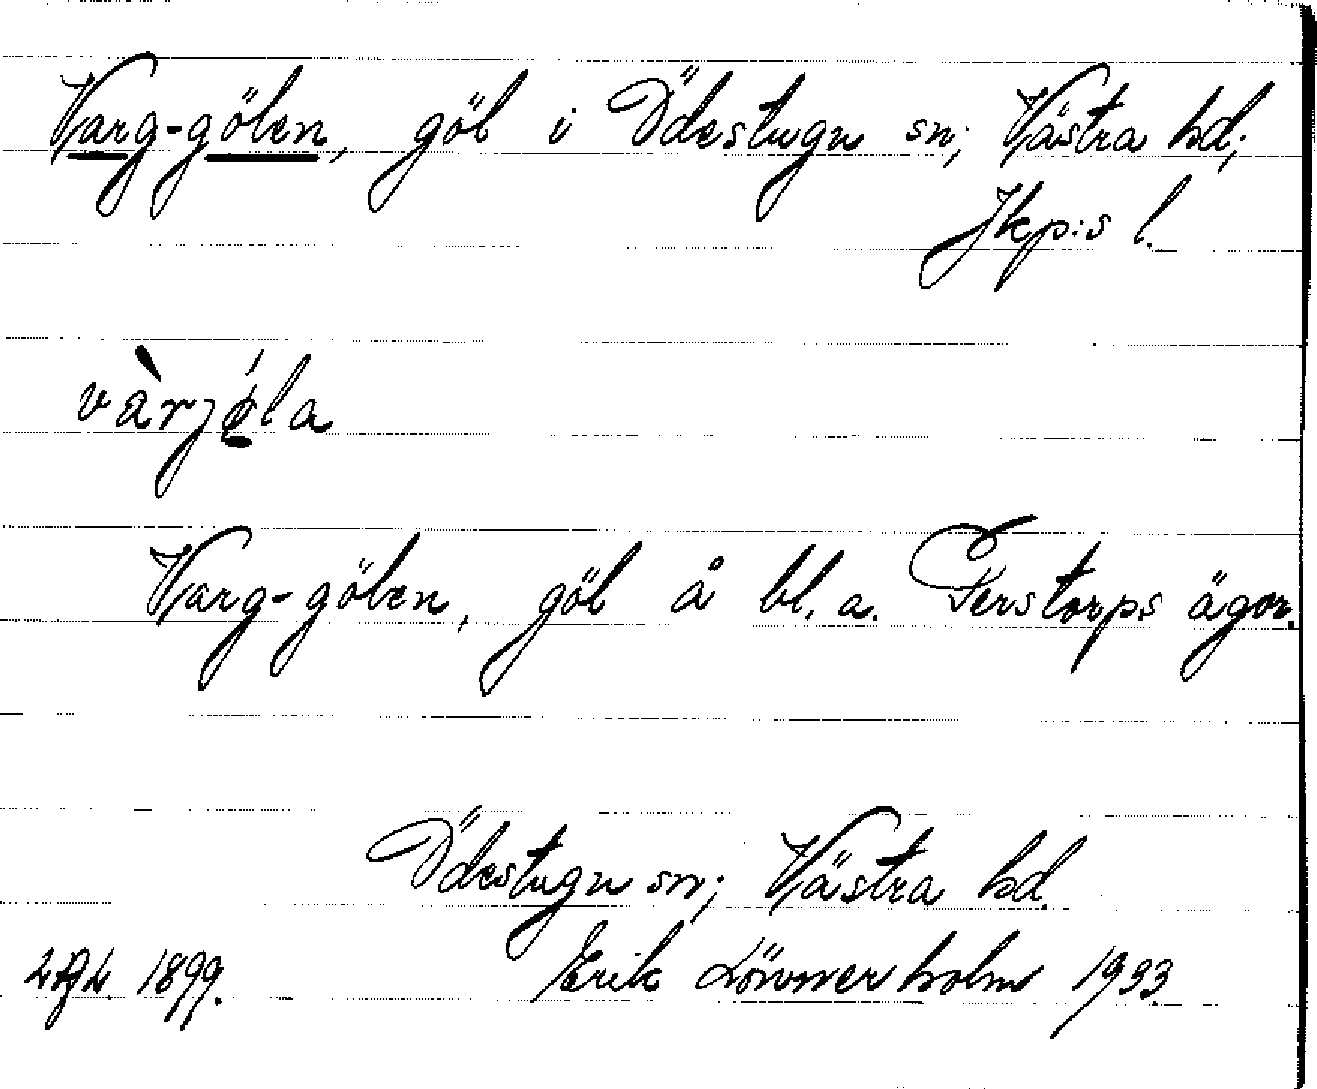 Varg-gölen, göl i Ödestugu sn; Västra hd;
Jkp:s l.
vàrjǿla
Varg-gölen, göl å bl. a. Ferstorps ägor.
Ödestugu sn; Västra hd.
1899. Erik Lönnerholm 1933